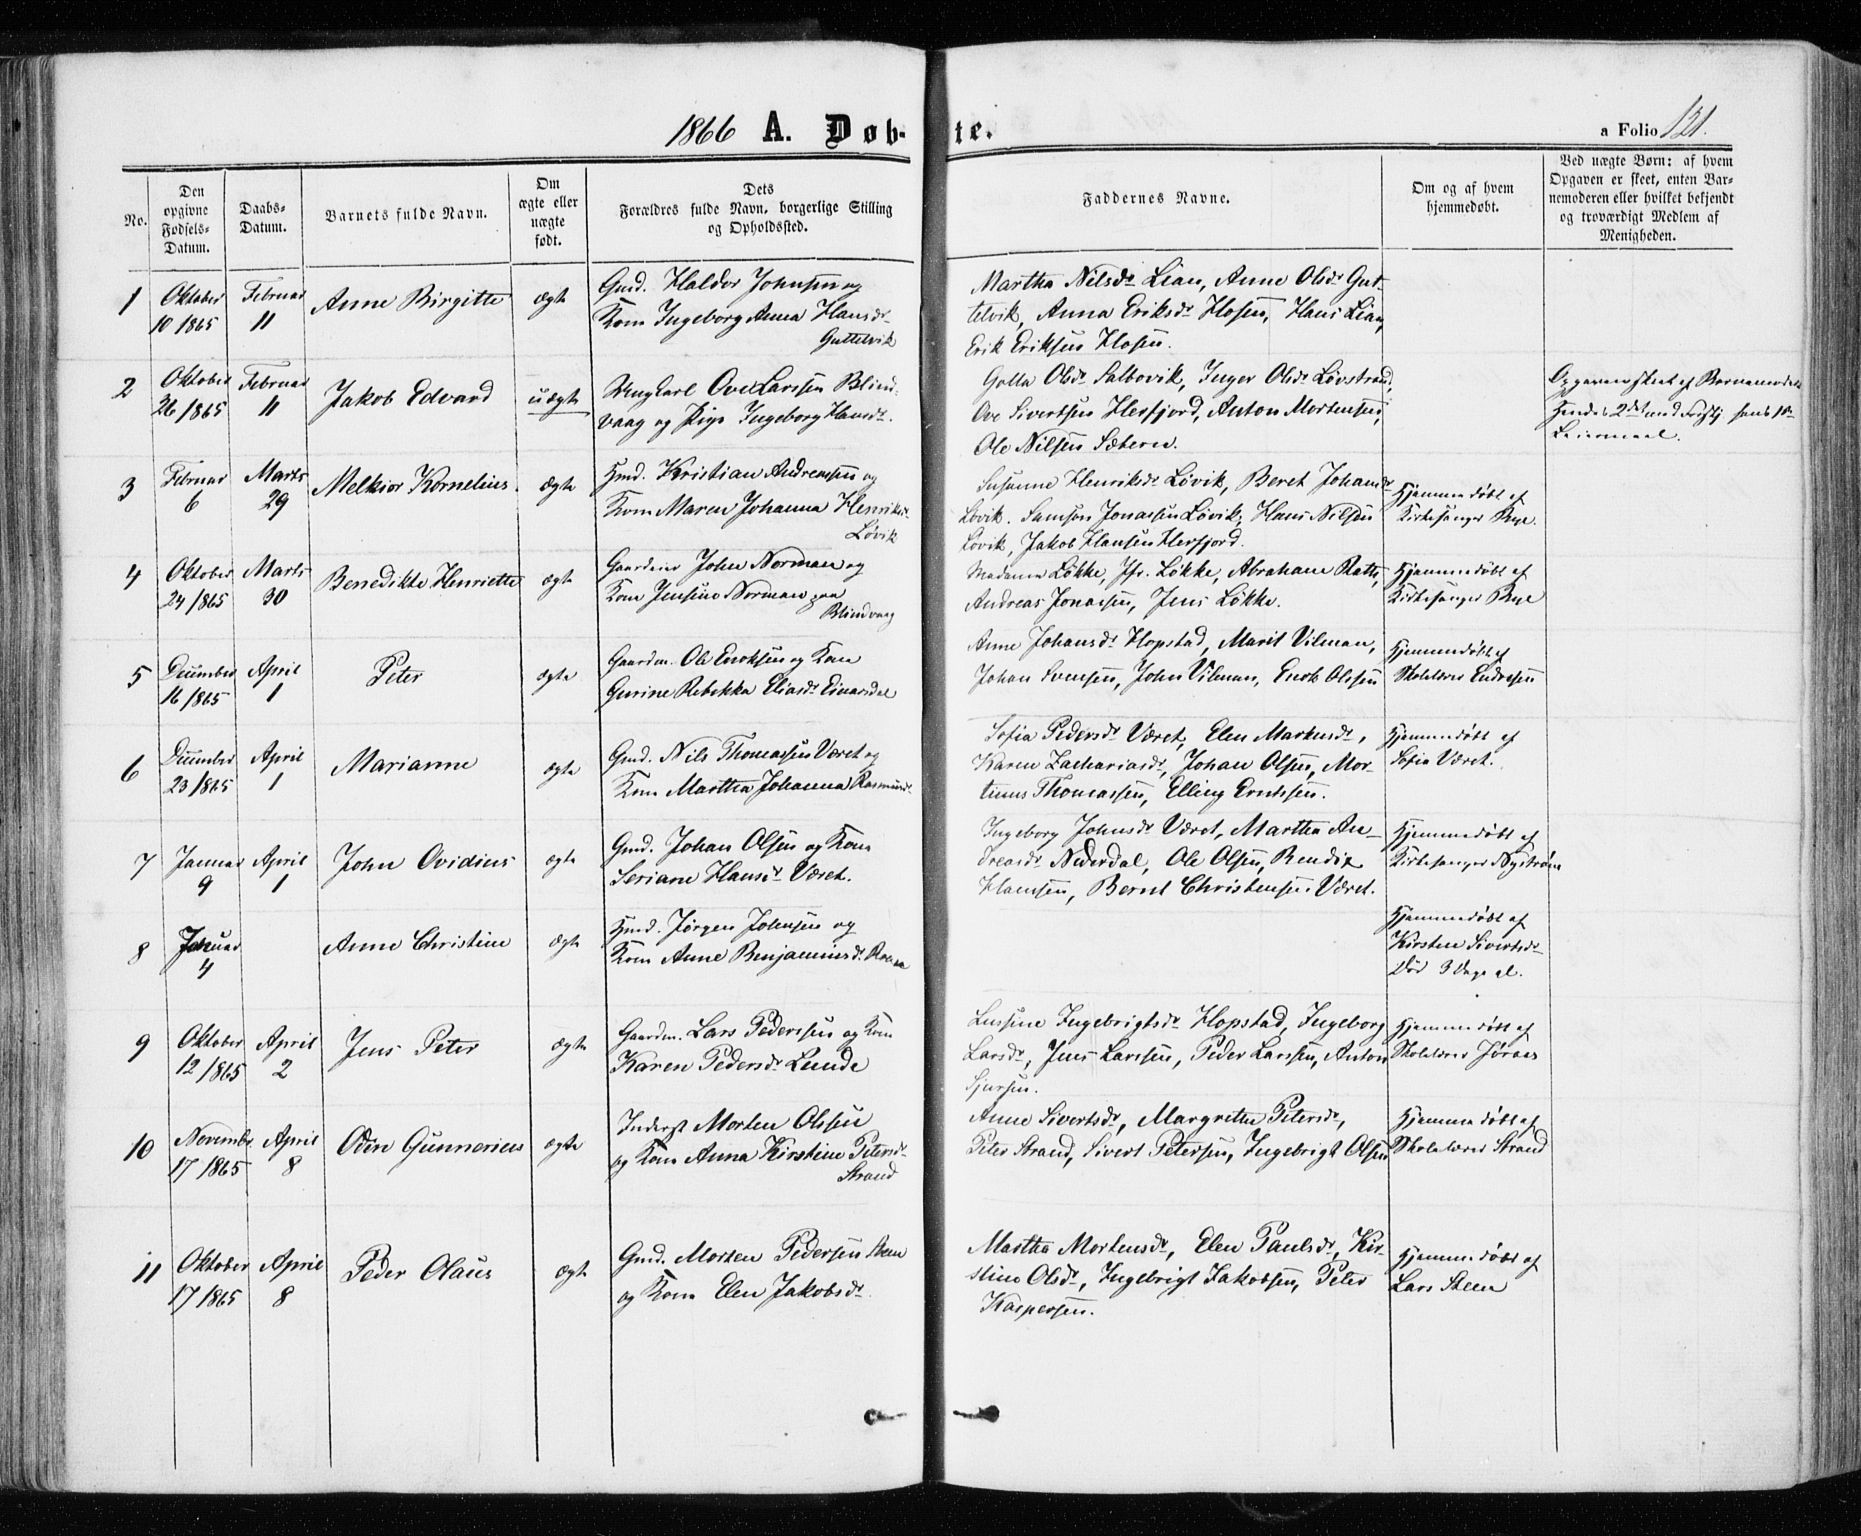 1866 A. Døb-
te.
a Folio 121.
No.
Den opgivne Fødsels-Datum.
Daabs-Datum.
Barnets fulde Navn.
Om ægte eller uægte født.
Dets
Forældres fulde Navn, borgerlige Stilling
og Opholdssted.
Faddernes Navne.
Om og af hvem
hjemmedøbt.
Ved uægte Børn: af hvem
Opgaven er skeet, enten Bar-
nemoderen eller hvilket bekjendt
og troværdigt Medlem af
Menigheden.
1
Oktober
10 1865
Februar
11
Anne Birgitte
ægte
Gmd. Haldor Johnsen og
Kone Ingeborg Anna Hansdr
Guttelvik
Martha Nilsdr Lian, Anne Olsdr Gut-
telvik, Anna Eriksdr Hosen, Hans Lian,
Erik Eriksen Hosen.
2
Oktober
26/1865
Februar
11
Jakob Edvard
uægte
Ungkarl Ove Larssen Blind-
vaag og Pige Ingeborg Hansdr.
Golla Olsdr Salbovik, Inger Olsdr Løvstrand,
Ove Sivertsen Herfjord, Anton Mortensen,
Ole Nilsen Sætern.
Opgaven skeet af Barnemoderen
Hendes 2det hans 1ste
Leiermaal.
3
Februar
6
Marts
29
Melkior Kornelius.
ægte
Hmd. Kristian Andreassen og
Kone Maren Johanna Henriksdr
Løvik
Susanne Henriksdr Løvik, Beret Johansdr
Løvik. Samson Jonassen Løvik, Hans Nilsen
Løvik, Jakob Hansen Herfjord.
Hjemmedøbt af
Kirkesanger Rye.
4
Oktober
24/1865
Marts
30
Benedikte Henriette
ægte
Gaardeier John Norman og
Kone Jensine Norman paa
Blindvaag
Madame Løkke, Jfr. Løkke, Abraham Rath,
Andreas Jonassen, Jens Løkke.
Hjemmedøbt af
Kirkesanger Rye
5
December
16/1865
April
1
Peter
ægte
Gaardm. Ole Eriksen og Kone
Gurine Rebekka Eliasdr Einarsdal
Anne Johansdr Hopstad, Marit Vilman,
Johan Svensen, John Vilman, Erik Olssen
Hjemmedøbt af
Skolelærer Endresen
6
December
23/1865
April
1
Marianne
ægte
Gmd. Nils Thomassen Været og
Kone Martha Johanna Rasmusdr
Sofia Pedersdr Været, Elen Markusdr,
Karen Zachariasdr, Johan Olsen, Mor-
tinus Thomassen, Elling Eriksen.
Hjemmedøbt af
Sofia Været.
7
Januar
9
April
1
John Ovidius
ægte
Gmd. Johan Olsen og Kone
Seriane Hansdr Været.
Ingeborg Johnsdr Været, Martha An-
dreasdr Nederdal, Ole Olsen, Bendix
Hansen, Bernt Christensen Været.
Hjemmedøbt af
Kirkesanger Nystrøm
8
Januar
4
Anne Christine
ægte
Hmd. Jørgen Johnsen og
Kone Anne Benjaminsdr
Hjemmedøbt af
Kirsten Sivertsdr
Død 3 Dage gl.
9
Oktober
12/1865
April
2
Jens Peter
ægte
Gaardm. Lars Pederssen og Kone
Karen Pedersdr Lunde
Lussine Ingebrigtsdr Hopstad, Ingeborg
Larsdr, Jens Larssen, Peder Larssen, Anton
Sjursen.
Hjemmedøbt af
Skolelærer Jørnes
10
Novembr
17 1865
April
8
Odin Gunnerius
ægte
Inderst Morten Olssen
og Kone Anna Kirstine Petersdr
Strand
Anne Sivertsdr, Margrethe Petersdr,
Peter Strand, Sivert Petersen, Ingebrigt Olsen
Hjemmedøbt af
Skolelærer Strand
11
Oktober
17 1865
April
8
Peder Olaus
ægte
Gmd. Morten Pedersen Steen
og Kone Elen Jakobsdr.
Martha Mortensdr, Elen Paulsdr, Kir-
stine Olsdr, Ingebrigt Jakobsen, Peter
Kaspersen.
Hjemmedøbt af
Lars Steen